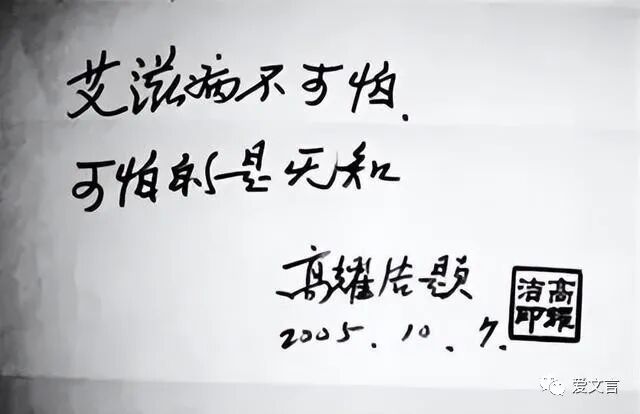 艾滋病不可怕.
可怕的是无知
高耀洁题
2005.10.7.
高耀
洁印
爱文言